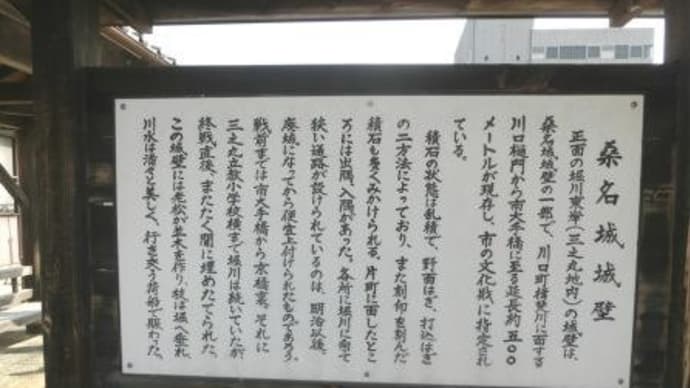 桑名城城壁
正面の堀川東岸(三之丸地内)の城壁は、
桑名城城壁の一部で、川口町揖斐川に面する
川口樋門から南大手橋に至る延長約五〇〇
メートルが現存し、市の文化財に指定され
ている。
積石の状態は乱積で、野面はぎ、打込はぎ
の二方法によっており、また刻印を刻んだ
積石も多くみかけられる。片町に面したとこ
ろには出隅、入隅があった。各所に堀川に向って
狭い通路が設けられているのは、明治以後、
廃城になってから便宜上付けられたものであろう。
戦前までは南大手橋から京橋裏、それに
三之丸立教小学校横まで堀川は続いていたが
終戦直後、またたく間に埋めたてられた。
この城壁には老松が並木を作り、枝は堀へ垂れ、
川水は清く美しく、行き交う荷船で賑わった。